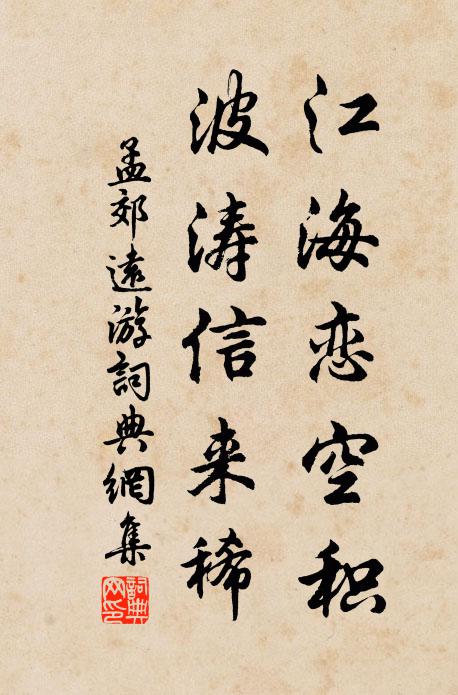 江海恋空积
波涛信来稀
孟郊遠游詞典網集
詞典网印